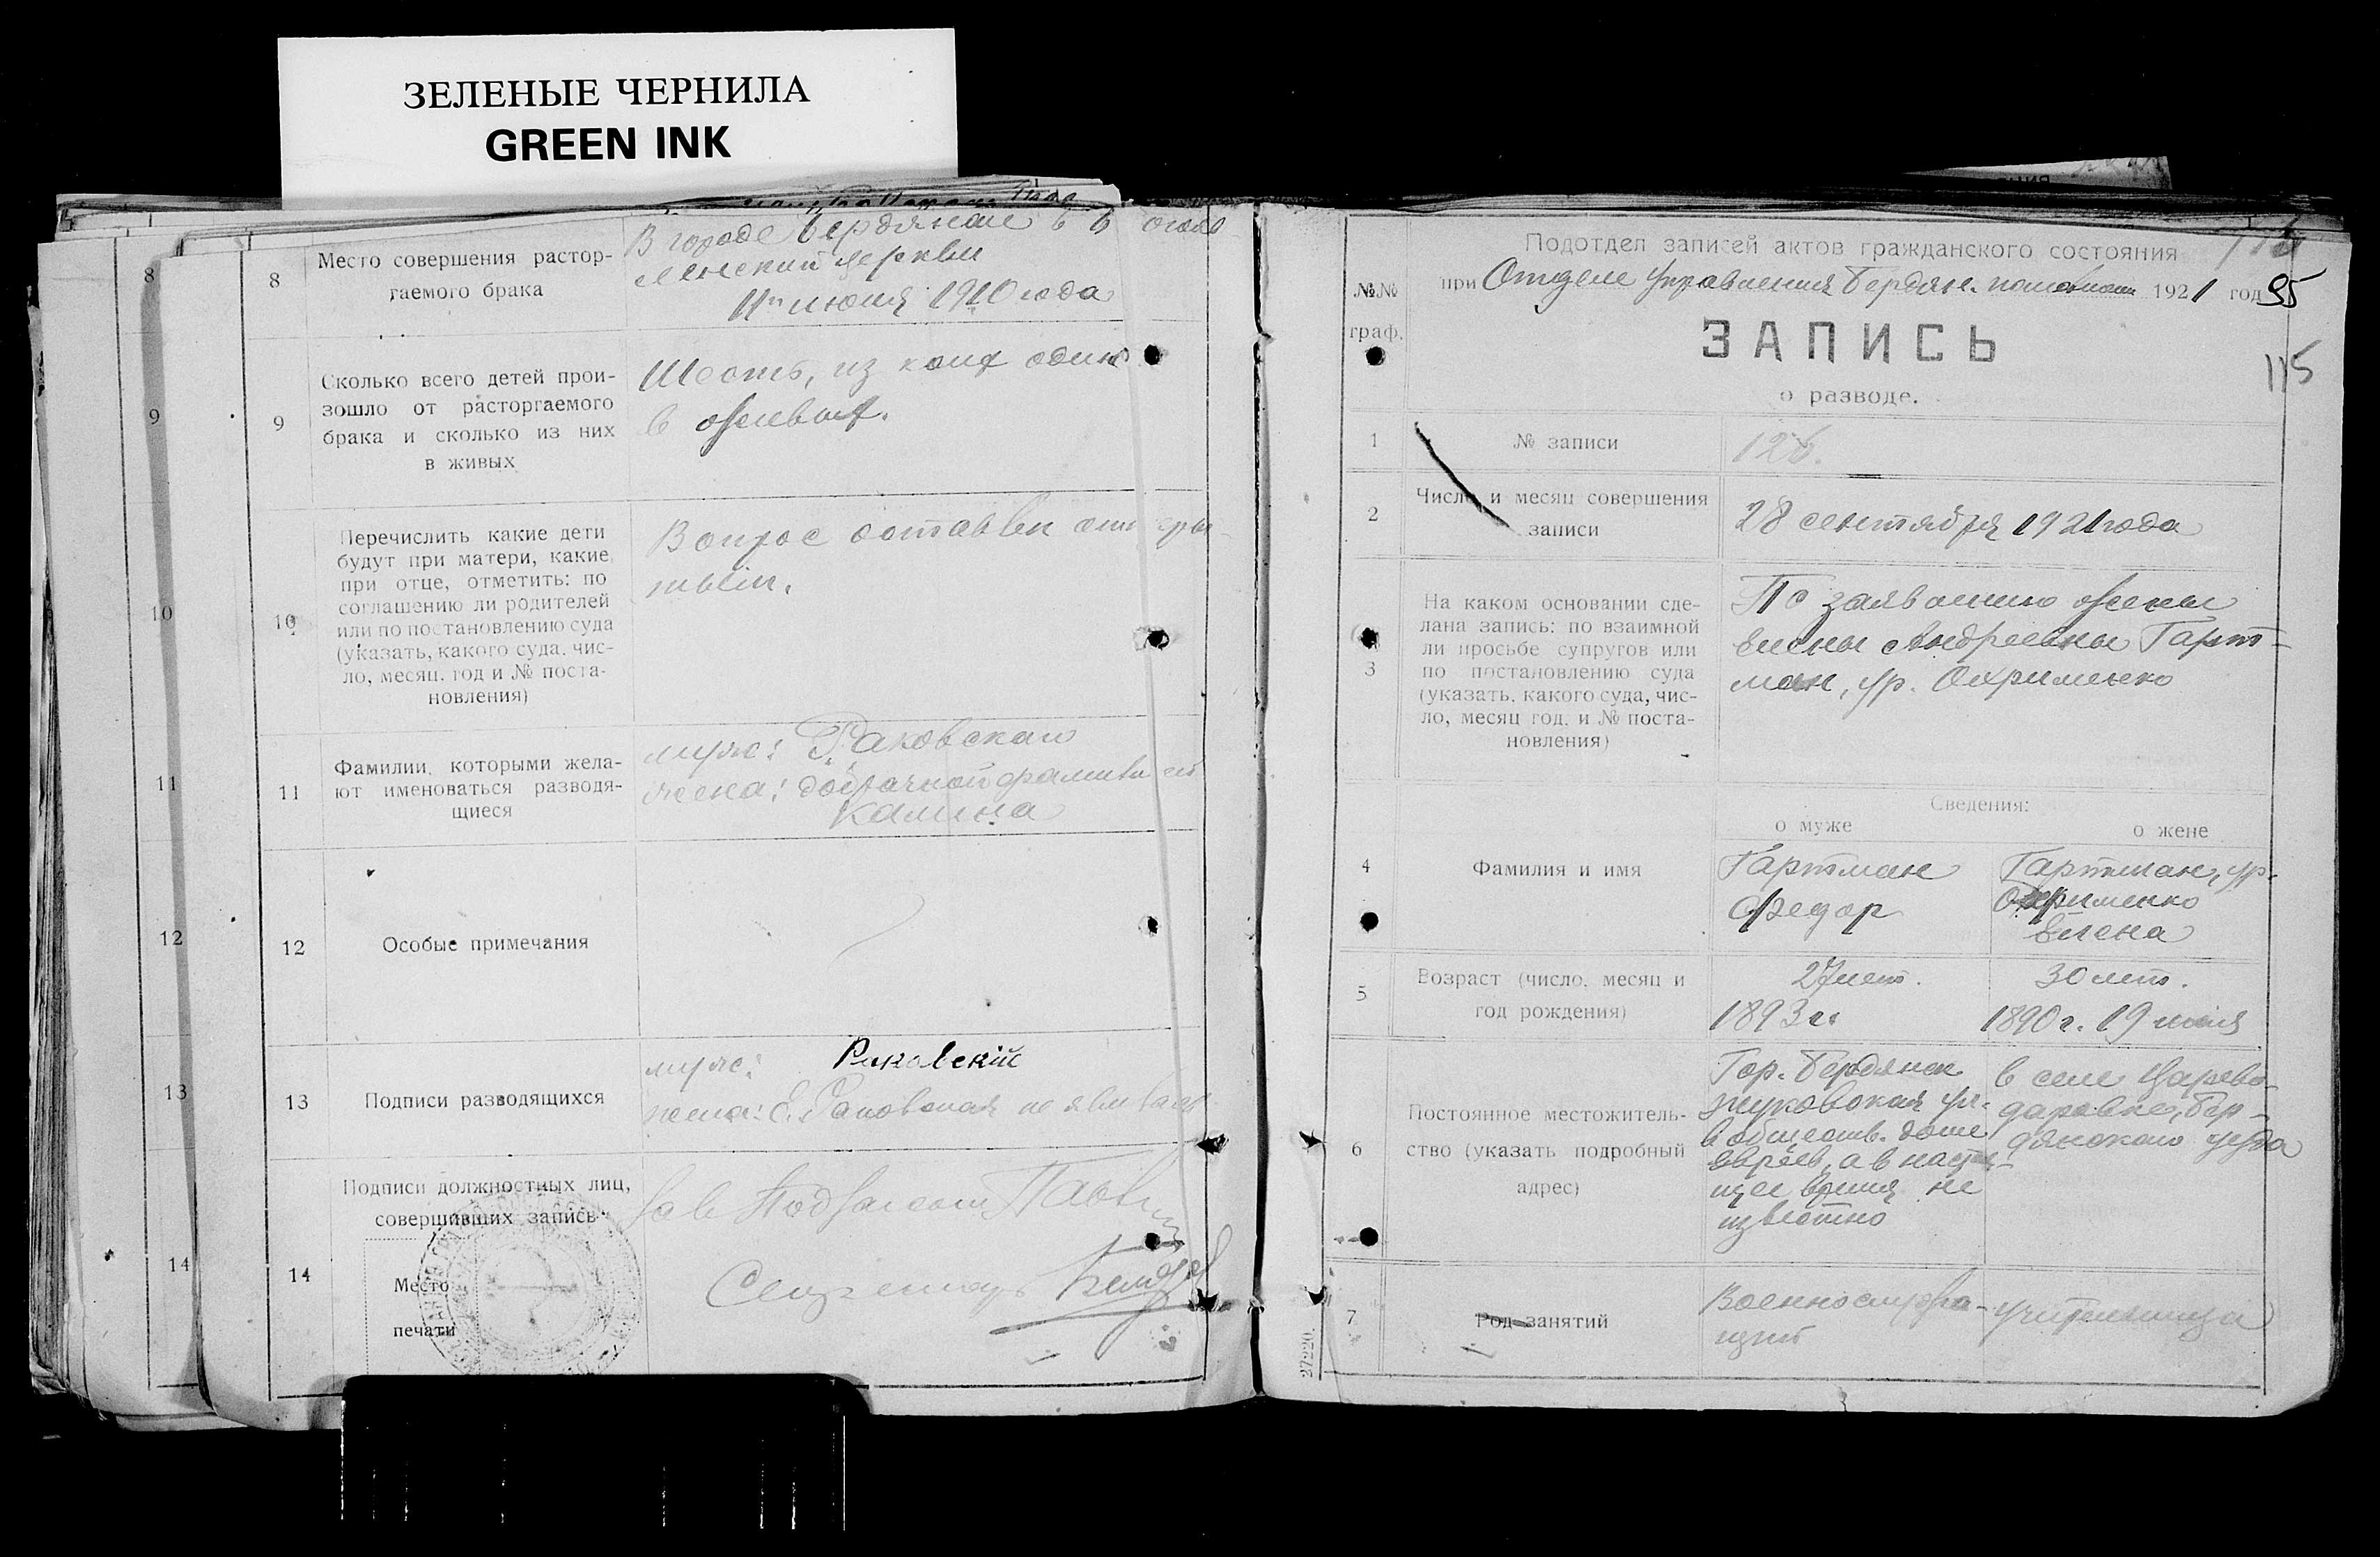 ЗЕЛЕНЫЕ ЧЕРНИЛА
GREEN INK
8
9
10
11
12
13
14
8
Место совершения растор-
гаемого брака
В городе Бердянске в
церкви
июля 1910 года
9
Сколько всего детей прои-
зошло от расторгаемого
брака и сколько из них
в живых
Шесть, из коих один
в живых.
10
Перечислить какие дети
будут при матери, какие
при отце, отметить: по
соглашению ли родителей
или по постановлению суда
(указать, какого суда, чис-
ло, месяц, год и № поста-
новления)
Вопрос оставлен откры-
тым.
11
Фамилии, которыми жела-
ют именоваться разводя-
щиеся
муж: Раковский
жена: добрачной фамилией
Калина
12
Особые примечания
13
Подписи разводящихся
муж: Раковскій
жена: Е. Раковская не явилась
14
Подписи должностных лиц,
совершивших запись
Место
печати
Зав Подзагсом
Секретарь
Подотдел записей актов гражданского состояния
при Отделе Управления Бердян. 1921 год 95
№№
граф.
ЗАПИСЬ
о разводе.
115
1
№ записи
126.
2
Число и месяц совершения
записи
28 сентября 1921 года
3
На каком основании сде-
лана запись: по взаимной
ли просьбе супругов или
по постановлению суда
(указать, какого суда, чис-
ло, месяц год, и № поста-
новления)
По заявлению жены
Елены Андреевны Гарт-
ман, ур. Охрименко
Сведения:
о муже
о жене
4
Фамилия и имя
Гартман
Федор
Гартман, ур.
Охрименко
Елена
5
Возраст (число, месяц и
год рождения)
27 лет.
1893 г.
30 лет.
1890 г. 19 мая
6
Постоянное местожитель-
ство (указать подробный
адрес)
Гор. Бердянск
Жуковская ул.
в обществ. доме
евреев, а в настоя-
щее время не
известно
в селе Царево-
даровке, Бер-
дянского уезда
7
Род занятий
Военнослужа-
щий
учительница
27220.